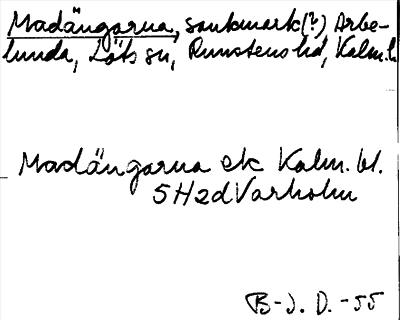 Madängarna, sankmark(?) Arbe-
lunda, Löts sn, Runstens hd, Kalm. l
Madängarna ek Kalm. bl.
5H2d Varholm
B-J. D. -55